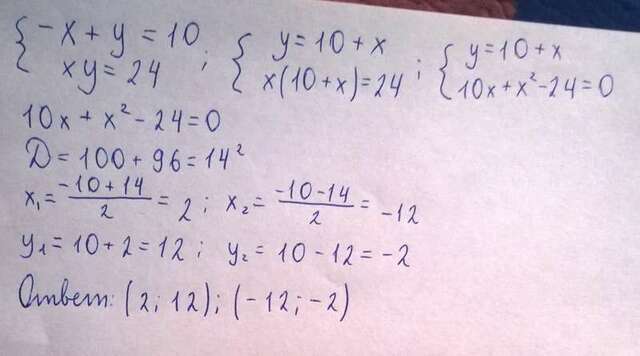 { -x + y = 10 ; { y = 10 + x ; { y = 10 + x
xy = 24 x(10 + x) = 24 10x + x² - 24 = 0
10x + x² - 24 = 0
D = 100 + 96 = 14²
x₁ = (-10 + 14)/2 = 2 ; x₂ = (-10 - 14)/2 = -12
y₁ = 10 + 2 = 12 ; y₂ = 10 - 12 = -2
Ответ: (2; 12); (-12; -2)